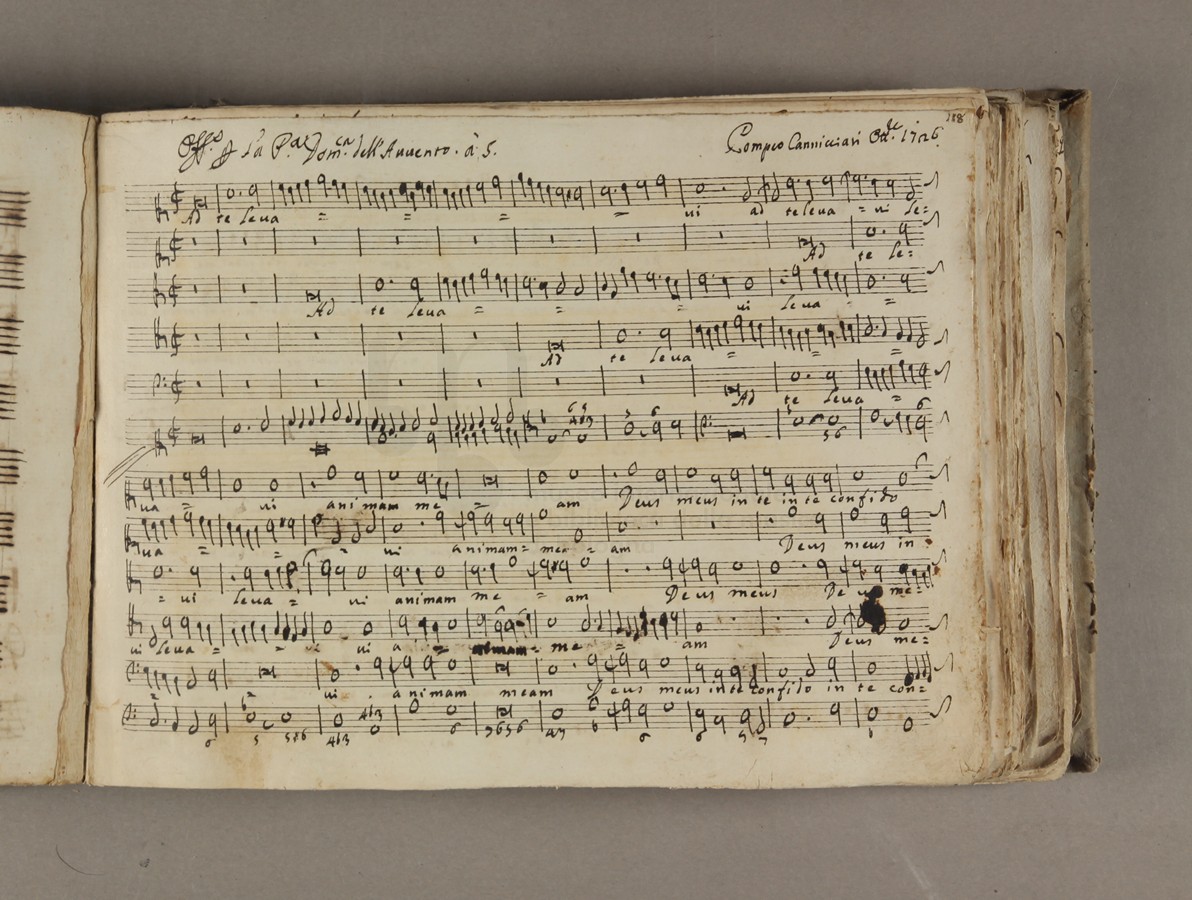 118
Offo. p La Pa. Domca. dell'Auuento. à 5.
Pompeo Cannicciari 8bre 1726
Ad te leua = = = = ui ad te leua = ui le=
Ad te le=
Ad te leua = = = ui leua =
Ad te leua = = =
Ad te leua =
6 5 4 3 5 6 5 6 6
ua = ui animam me = am Deus meus in te in te confido
ua = = = ui animam= mea = am Deus meus in
= ui leua = ui animam me = am Deus meus Deus me=
ui leua = = ui ui a = animam= me = am Deus me=
= = ui animam meam Deus meus in te confido in te con=
6 5 5 6 4 3 6 5 6 5 6 4 3 6 6 6 5